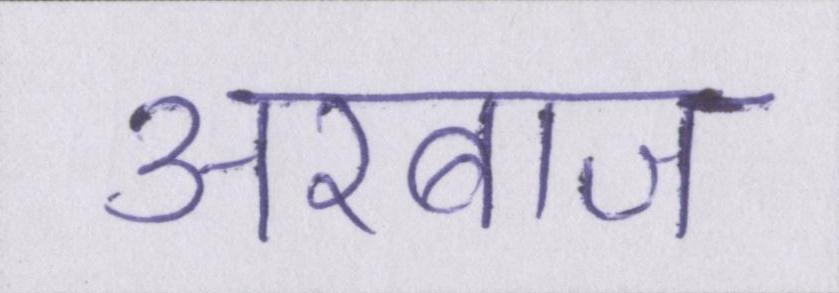 अरबाज